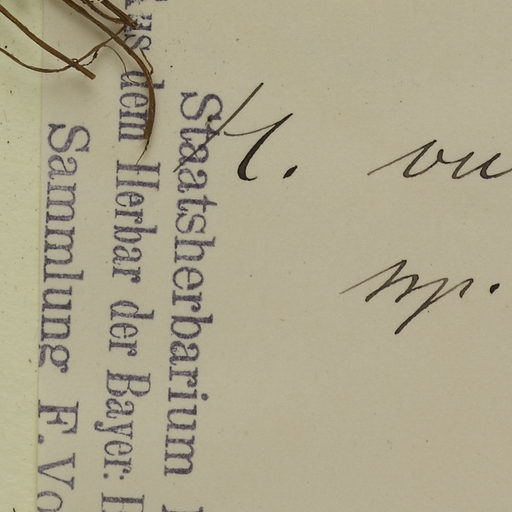 Staatsherbarium
aus dem Herbar der Bayer.
Sammlung F. Vo
H.
sp.